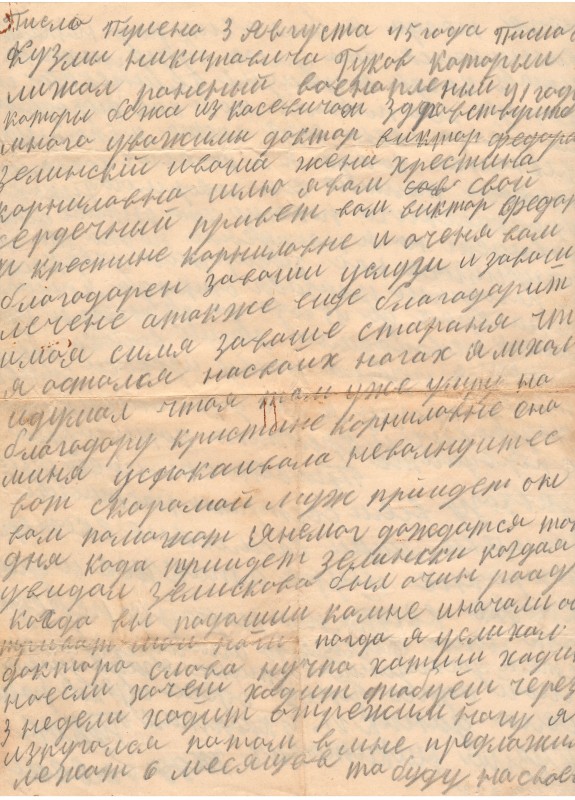 Писмо Пушено 3 Августа 45 года Писмо
Кузмы никитавича Гуков которыи
лижал раненый военапленый 41 годе
которы бежа из касевичахи Здравствуите
многа уважимы доктар виктар федара
зелинскiй иваша жена хрестина
корниловна шлю явам свой
сердечный привет вам виктар федар
и крестине карниловне и оченя вам
благодарен заваши услуги и заваш
лечене атакже еще благодарит
имоя симя заваше стараня что
я остался насваих нагах я лижал
идумал чтоя там уже умру но
благодору кристине корниловне она
миня успокаивала неволнуитес
вот скарамой муж приидет он
вам поможат янемог дождатся тог
дня када приидет зелински когдая
увидал зелискова был очин раад
когда вы падашли камне иначали ос
мои наги тагда я услихал
доктара слова нучто хатиш хадит
ноесли хочеш ходит то будеш через
3 недели ходит отрежим ногу я
изпугался патом вмне предложили
лежат 6 месяцов та буду насвое